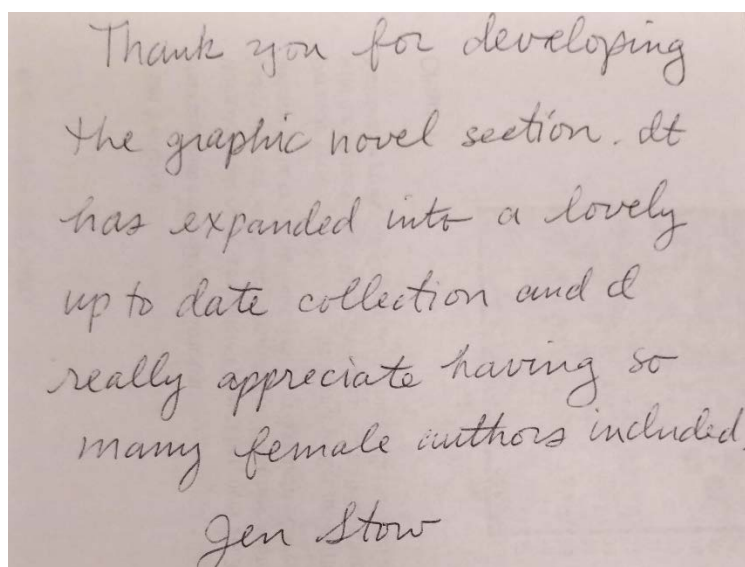 Thank you for developing
the graphic novel section. It
has expanded into a lovely
up to date collection and I
really appreciate having so
many female authors included.
Jen Stow